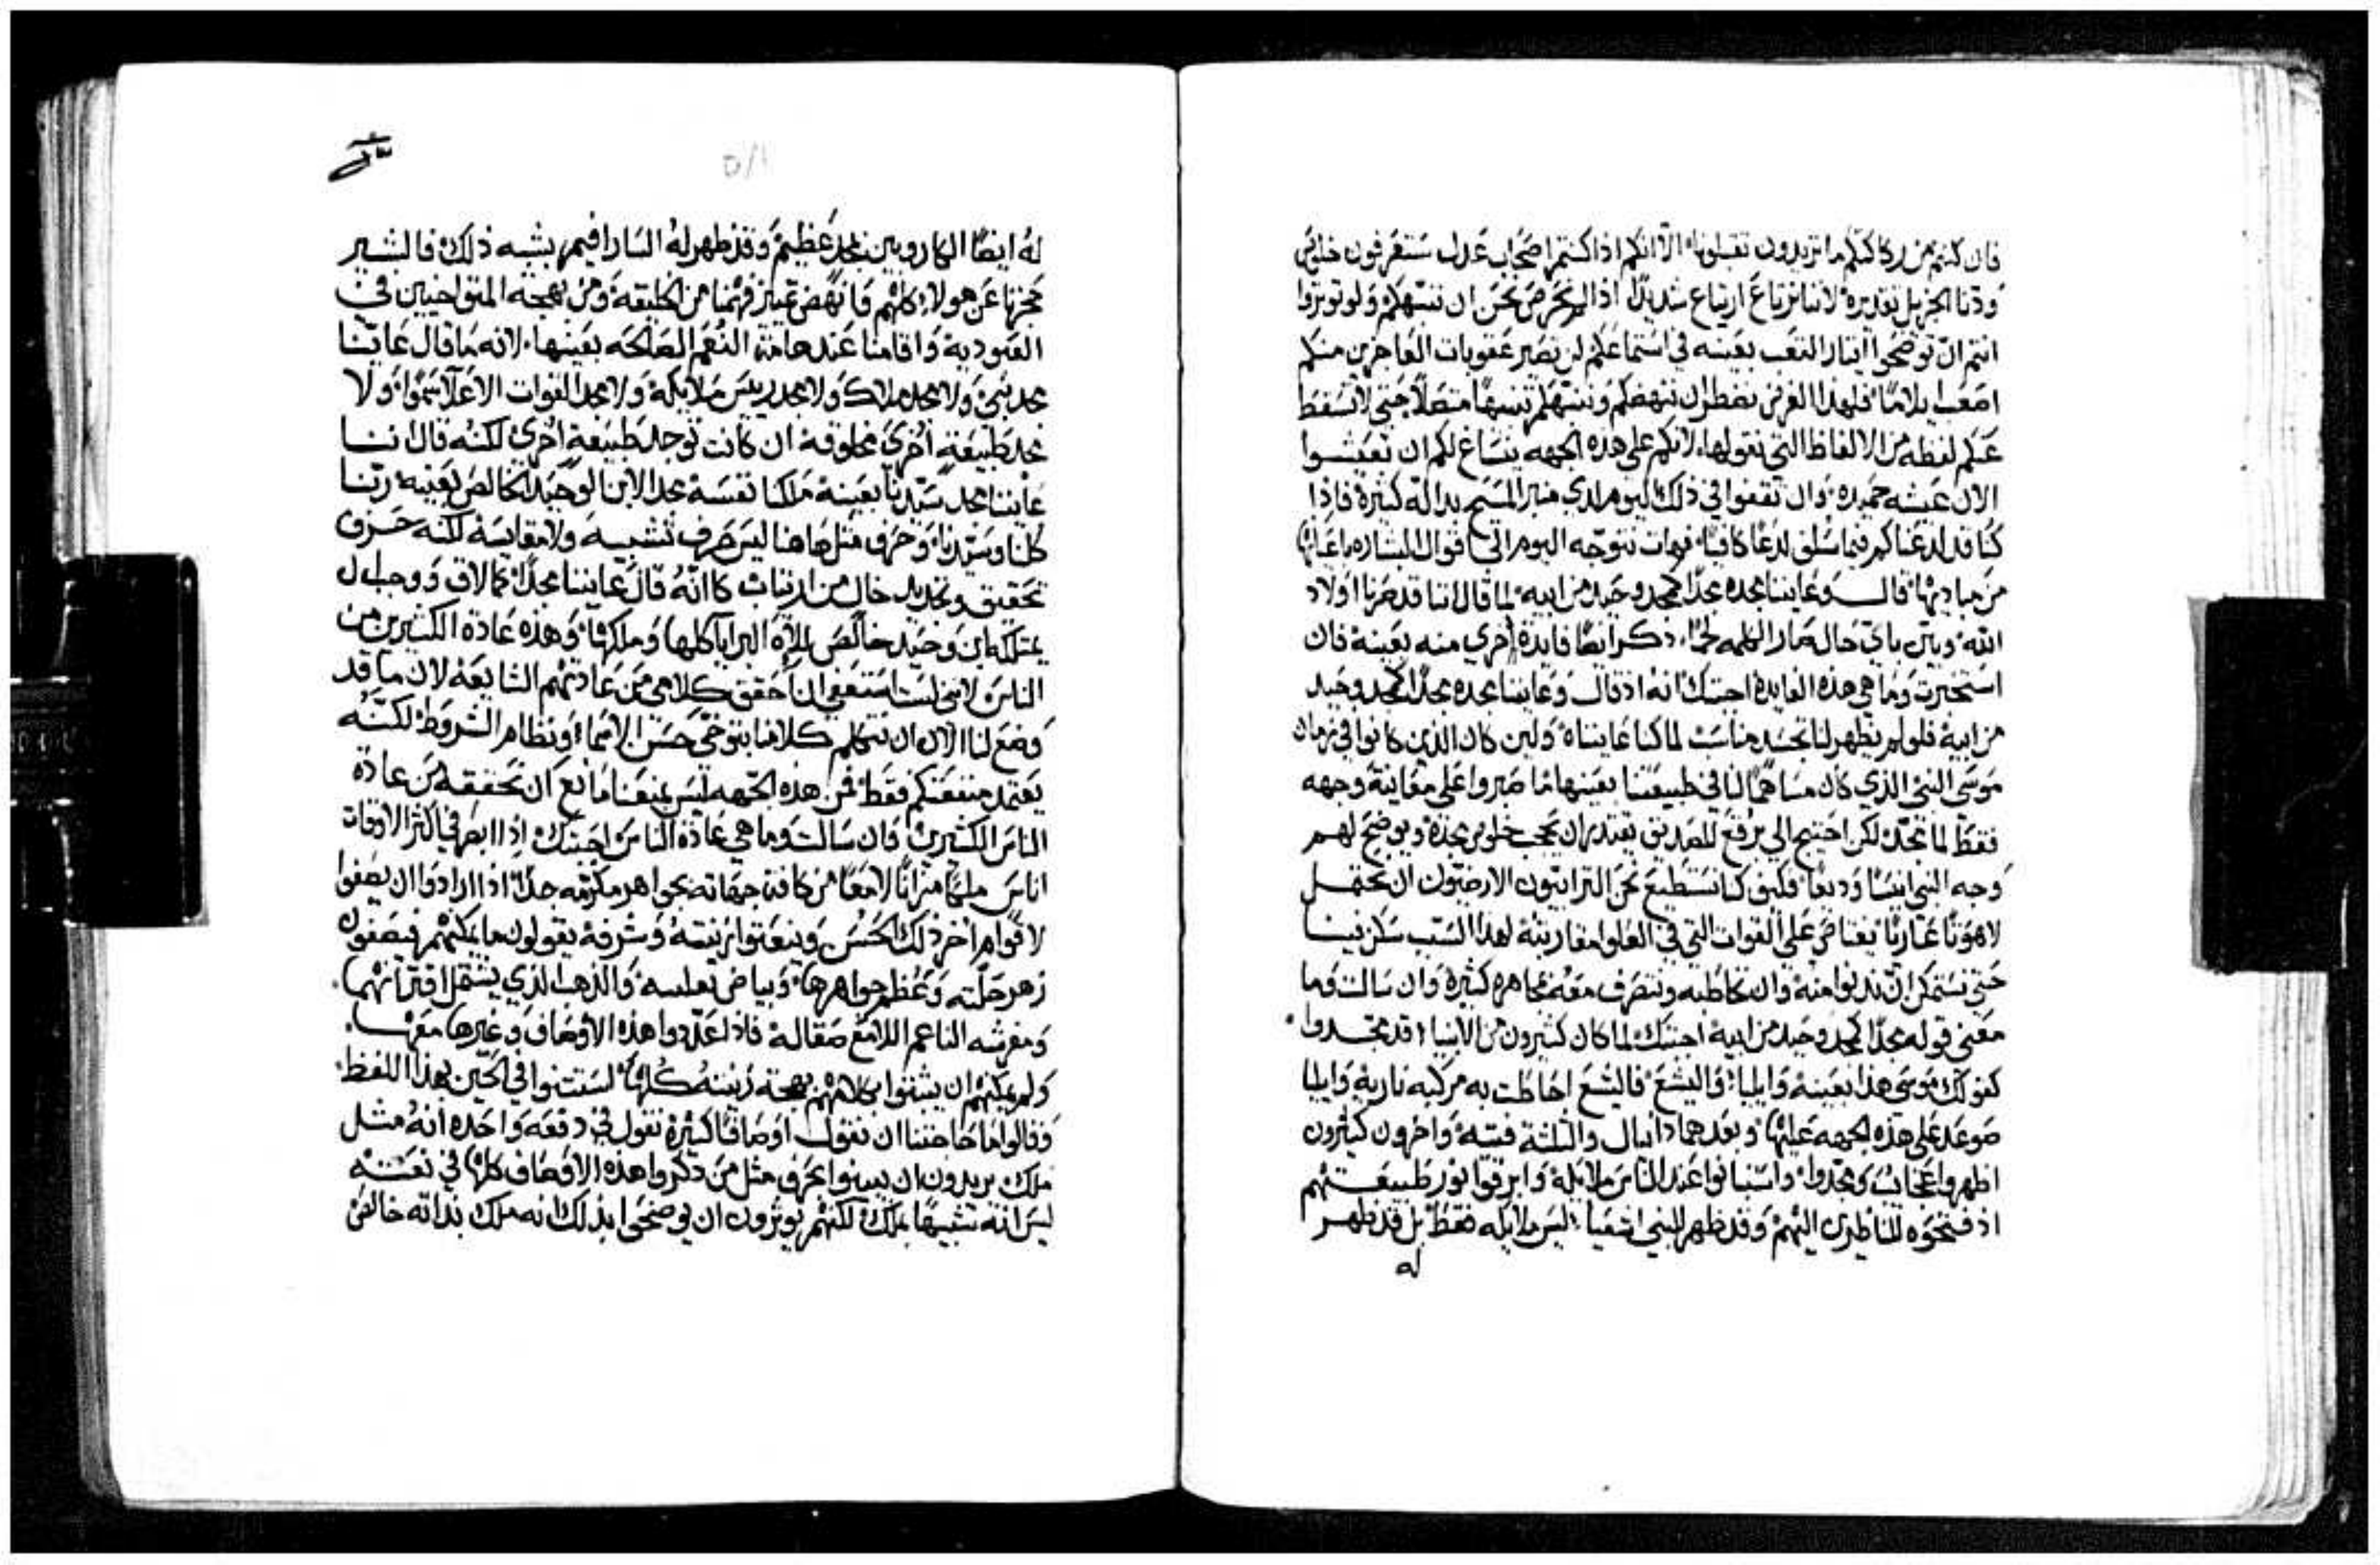 فان كنتم من ذكاكتكم ما تريدون تقبلونها الا انكم اذا كنتم اصحاب عدل ستعرفون خلوص
ودنا الجزيل تقديره لاننا نرتاع ارتياع شديدًا اذا لم نحرص نحن ان ننبهكم ولو توثروا
انتم ان توضحوا ايثار التعب بعينه في استماعكم لن تصير عقوبات العاجزين منكم
اصعب ايلامًا فلهذا الغرض نضطر ان ننهضكم وننبهكم تنبيهًا متصلًا حتى لا تسقط
عنكم لفظه من الالفاظ التي نقولها لانكم على هذه الجهه ينساغ لكم ان تعيشوا
الان عيشه حميده وان تقفوا في ذلك اليوم لدي منبر المسيح بداله كثيرة فاذا
كنا قد لدغناكم فيما سلف لدغًا كافيًا فهات نتوجه اليوم الي اقوال البشاره باعيانها
من مباديها قال وعايننا مجده مجدًا كمجد وحيد من ابيه لما قال اننا قد صرنا اولاد
الله وبين باي حال صار الكلمه لحمًا ذكر ايضًا فايدة اخري منه بعينه فان
استخبرت وما هي هذه الفايدة اجبتك انه اذ قال وعايننا مجده مجدًا كمجد وحيد
من ابيه فلو لم يظهر لنا بجسد مناسب لما كنا عايناه ولين كان الذين كانوا في زمان
موسى النبي الذي كان مساهمًا لنا في طبيعتنا بعينها ما صبروا على معاينة وجهه
فقط لما تمجد لكن احتيج الي برقع للصديق يقتدر ان يحجب خلوص مجده ويوضح لهم
وجه النبي انيسًا وديعًا فكيف كنا نستطيع نحن الترابيون الارضيون ان نحتمل
لاهوتًا عاريًا يعتاص على القوات التي في العلو مقاربته لهذا السبب سكن فينا
حتى نستمكن ان ندنوا منه وان نخاطبه ونتصرف معه مجاهره كثيرة وان سالت وما
معنى قوله مجدًا كمجد وحيد من ابيه اجبتك لما كان كثيرون من الانبياء قد تمجدوا
كقولك موسى هذا بعينه وايليا واليشع فاليشع احاطت به مركبه ناريه وايليا
صوعد على هذه الجهه عليها وبعدهما دانيال والثلثة فتيه واخرون كثيرون
اظهروا عجائب وتمجدوا واستبانوا عند الناس ملايكة وابرقوا نور طبيعتهم
اذ فتحوه للناظرين اليهم وقد ظهر للنبي اشعيا ليس ملايكه فقط بل قد ظهر
له
له ايضًا الكاروبين بمجد عظيم وقد ظهر له السارافيم بشبه ذلك فالبشير
حجزنا عن هولاء كلهم وانهض تمييز فهمنا من الخليقة ومن بهجه المتواخيين في
العبودية واقامنا عند هامة النعم الصالحه بعينها لانه ما قال عايننا
مجد نبي ولا مجد ملاك ولا مجد رييس ملايكة ولا مجد القوات الاعلا سموا ولا
مجد طبيعة اخرى مخلوقة ان كانت توجد طبيعة اخرى لكنه قال اننا
عايننا مجد سيدنا بعينه ملكنا نفسه مجد الابن الوحيد الخالص بعينه ربنا
كلنا وسيدنا وحرف مثل هاهنا ليس حرف تشبيه ولا مقايسة لكنه حرف
تحقيق وتحديد خالٍ من ارتياب كانه قال عايننا مجدًا كما لاق ووجب ل
يمتلكه ابن وحيد خالص لاله البرايا كلها وملكها وهذه عادة الكثيرين من
الناس لانني لست استعفي ان احقق كلامي من عادتهم الشايعة لان ما قد
وضع لنا الان ان نتكلم كلامنا بتوخي حسن الاسماء ونظام الشروط لكنه
يعتمد منفعتكم فقط فمن هذه الجهه ليس يمنعنا مانع ان نحققه من عادة
الناس الكثيرين فان سالت وما هي عادة الناس اجبتك اذا ابصر في اكثر الاوقات
اناس ملكًا مزينًا لامعًا من كافة جهاته بجواهر مكرمه جدًا اذا ارادوا ان يصفوا
لاقوام اخر ذلك الحسن وينعتوا زينته وشرفه يقولون ما يمكنهم فيصفون
زهر حلته وعظم جواهرها وبياض بغلته والذهب الذي يشتمل اقترانهما
ومفرشه الناعم اللامع صقاله فاذا عددوا هذه الاوصاف وغيرها معها
ولم يمكنهم ان يثبتوا بكلامهم بهجة زينته كلها استثنوا في الحين بهذا اللفظ
وقالوا ما حاجتنا ان نقول اوصافًا كثيرة نقول في دفعة واحده انه مثل
ملك يريدون ان يبينوا بحرف مثل من ذكروا هذه الاوصاف كلها في نعته
ليس انه شبيهًا بملك لكنهم يوثرون ان يوضحوا بذلك انه ملك بذاته خالص